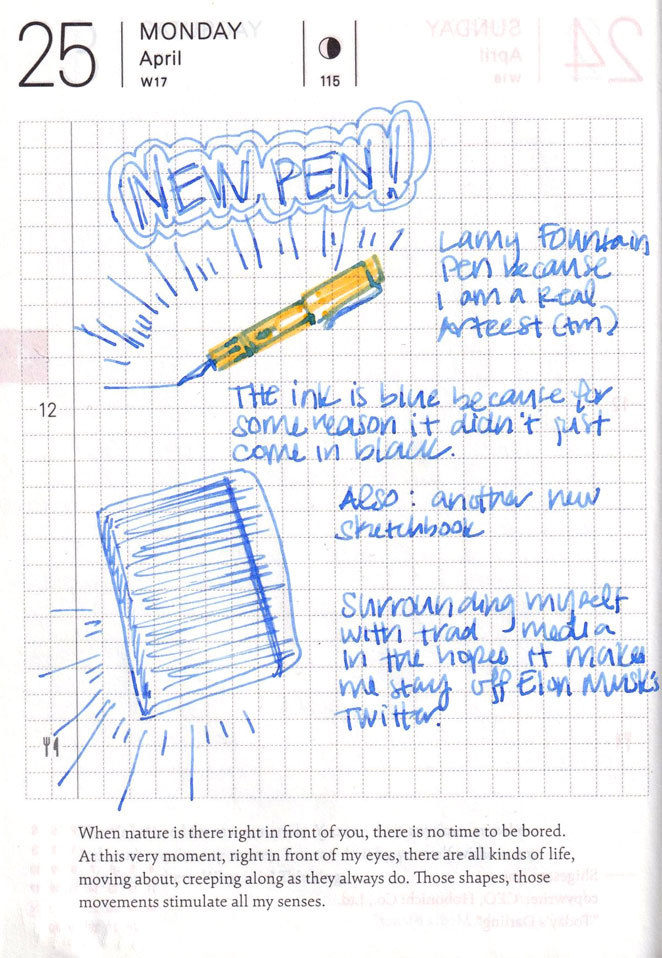 25
MONDAY
April
W17
115
NEW PEN!
Lamy Fountain
pen because
I am a Real
Arteest (tm)
THe ink is blue because for
some reason it didn't just
come in black.
12
Also: another new
sketchbook
Surrounding myself
with trad-media
in the hopes it makes
me stay off Elon Musk's
Twitter.
When nature is there right in front of you, there is no time to be bored.
At this very moment, right in front of my eyes, there are all kinds of life,
moving about, creeping along as they always do. Those shapes, those
movements stimulate all my senses.